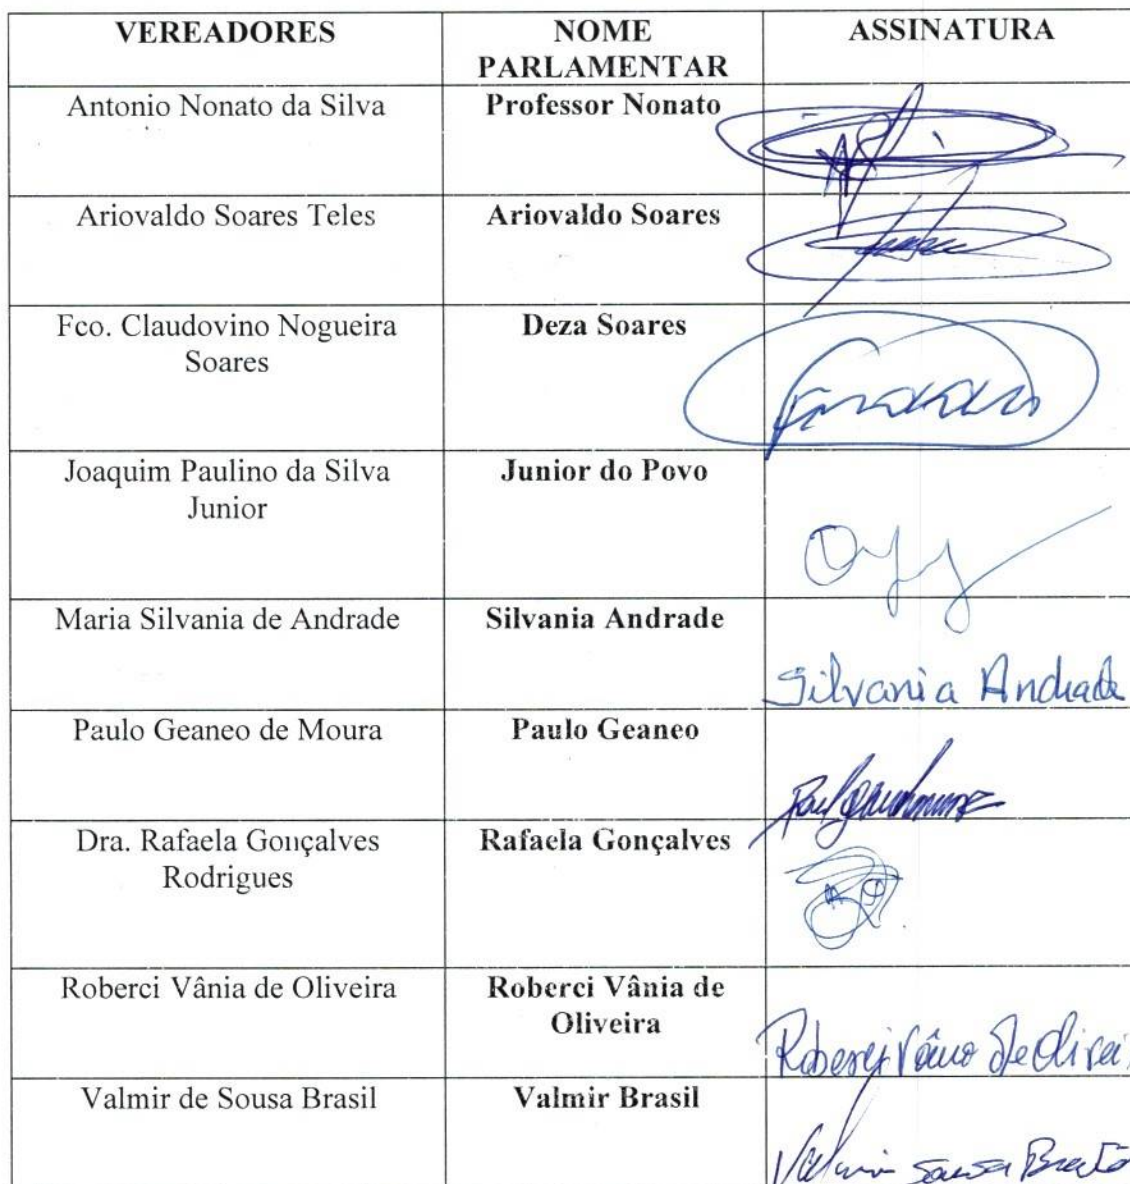 VEREADORES
NOME
PARLAMENTAR
ASSINATURA
Antonio Nonato da Silva
Professor Nonato
Ariovaldo Soares Teles
Ariovaldo Soares
Fco. Claudovino Nogueira
Soares
Deza Soares
Joaquim Paulino da Silva
Junior
Junior do Povo
Maria Silvania de Andrade
Silvania Andrade
Silvania Andrade
Paulo Geaneo de Moura
Paulo Geaneo
Dra. Rafaela Gonçalves
Rodrigues
Rafaela Gonçalves
Roberci Vânia de Oliveira
Roberci Vânia de
Oliveira
Roberci Vânia de Olivei
Valmir de Sousa Brasil
Valmir Brasil
Valmir Sousa Brasil